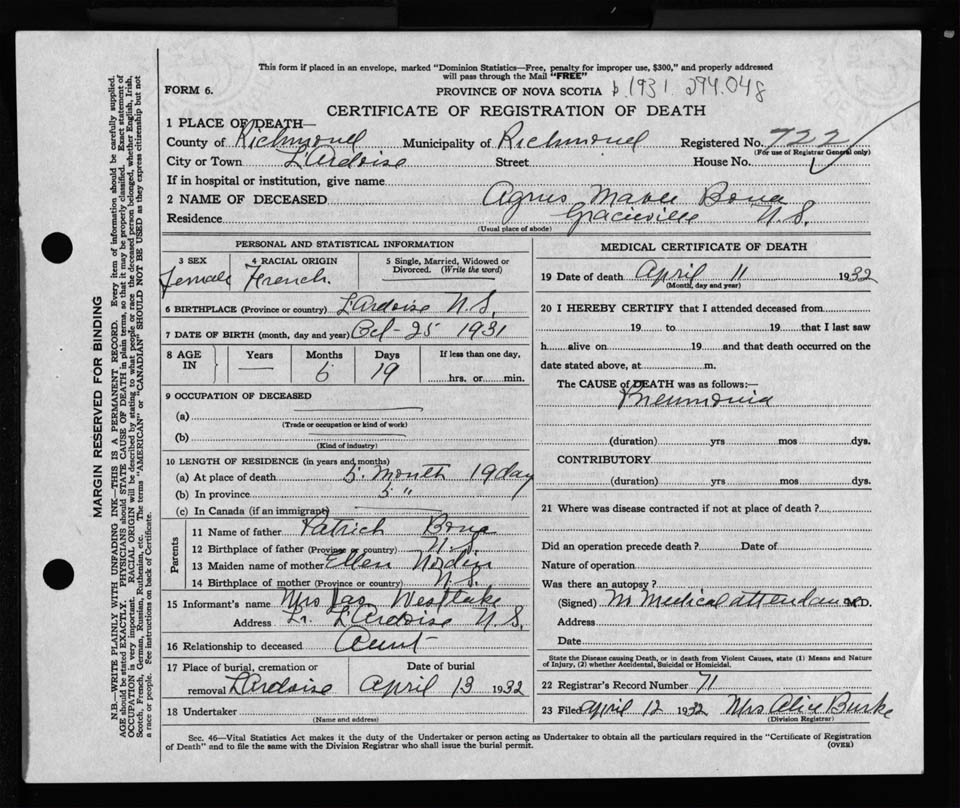 This form if placed in an envelope, marked "Dominion Statistics—Free, penalty for improper use, $300," and properly addressed
will pass through the Mail "FREE"
FORM 6. PROVINCE OF NOVA SCOTIA b. 1931. 294.048
CERTIFICATE OF REGISTRATION OF DEATH
1 PLACE OF DEATH—
County of Richmond Municipality of Richmond Registered No. 722
(For use of Registrar General only)
City or Town L'Ardoise Street House No.
If in hospital or institution, give name
2 NAME OF DECEASED Agnus Mabel Bona
Residence Gracieville N.S.
(Usual place of abode)
PERSONAL AND STATISTICAL INFORMATION
3 SEX 4 RACIAL ORIGIN 5 Single, Married, Widowed or
Divorced. (Write the word)
Female French.
6 BIRTHPLACE (Province or country) L'Ardoise N.S.
7 DATE OF BIRTH (month, day and year) Oct - 25 1931
8 AGE IN Years Months Days If less than one day,
— 5 19 hrs. or min.
9 OCCUPATION OF DECEASED
(a)
(Trade or occupation or kind of work)
(b)
(Kind of industry)
10 LENGTH OF RESIDENCE (in years and months)
(a) At place of death 5. Month 19 day
(b) In province 5 "
(c) In Canada (if an immigrant)
Parents
11 Name of father Patrick Bona
12 Birthplace of father (Province or country) N.S.
13 Maiden name of mother Ellen
14 Birthplace of mother (Province or country) N.S.
15 Informant's name Mrs Jas Westlake
Address Lr. L'Ardoise N.S.
16 Relationship to deceased Aunt
17 Place of burial, cremation or Date of burial
removal L'Ardoise April 13 1932
18 Undertaker
(Name and address)
MEDICAL CERTIFICATE OF DEATH
19 Date of death April 11 1932
(Month, day and year)
20 I HEREBY CERTIFY that I attended deceased from
19 to 19 that I last saw
h alive on 19 and that death occurred on the
date stated above, at m.
The CAUSE of DEATH was as follows:—
Pneumonia
(duration) yrs mos dys.
CONTRIBUTORY
(duration) yrs mos dys.
21 Where was disease contracted if not at place of death?
Did an operation precede death? Date of
Nature of operation
Was there an autopsy?
(Signed) No Medical attendance M.D.
Address
Date
State the Disease causing Death, or in death from Violent Causes, state (1) Means and Nature
of Injury, (2) whether Accidental, Suicidal or Homicidal.
22 Registrar's Record Number 71
23 Filed April 12 1932 Mrs Alice Burke
(Division Registrar)
Sec. 46—Vital Statistics Act makes it the duty of the Undertaker or person acting as Undertaker to obtain all the particulars required in the "Certificate of Registration
of Death" and to file the same with the Division Registrar who shall issue the burial permit. (OVER)
MARGIN RESERVED FOR BINDING
N.B.—WRITE PLAINLY WITH UNFADING INK—THIS IS A PERMANENT RECORD. Every item of information should be carefully supplied.
AGE should be stated EXACTLY. PHYSICIANS should STATE CAUSE OF DEATH in plain terms, so that it may be properly classified. Exact statement of
OCCUPATION is very important. RACIAL ORIGIN will be described by stating to what people or race the deceased person belonged, whether English, Irish,
Scotch, French, German, Russian, Ruthenian, etc. The terms "AMERICAN" or "CANADIAN" SHOULD NOT BE USED as they express citizenship but not
a race or people. See instructions on back of Certificate.